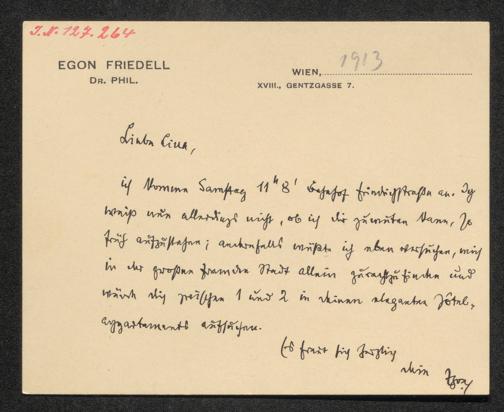 I.N. 127.264
EGON FRIEDELL
DR. PHIL.
WIEN, 1913
XVIII., GENTZGASSE 7.
Liebe Lina,
ich komme Samstag 11ʰ 8' Bahnhof Friedrichstraße an. Ich
weiß nun allerdings nicht, ob ich dir zumuten kann, so
früh aufzustehen; andernfalls müßte ich eben versuchen, mich
in der großen fremden Stadt allein zurechtzufinden und
würde dich zwischen 1 und 2 in deinen eleganten Hotel-
appartements aufsuchen.
Es freut sich herzlich
dein Egon